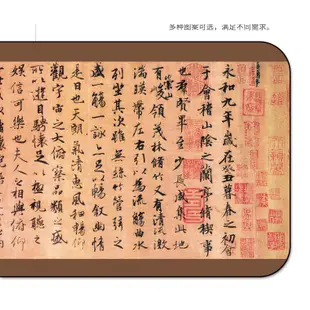 多种图案可选，满足不同需求。
永和九年歲在癸丑暮春之初會
于會稽山陰之蘭亭脩稧事
也羣賢畢至少長咸集此地
有崇山峻領茂林脩竹又有清流激
湍暎帶左右引以為流觴曲水
列坐其次雖無絲竹管弦之
盛一觴一詠亦足以暢敘幽情
是日也天朗氣清惠風和暢仰
觀宇宙之大俯察品類之盛
所以遊目騁懷足以極視聽之
娛信可樂也夫人之相與俯仰